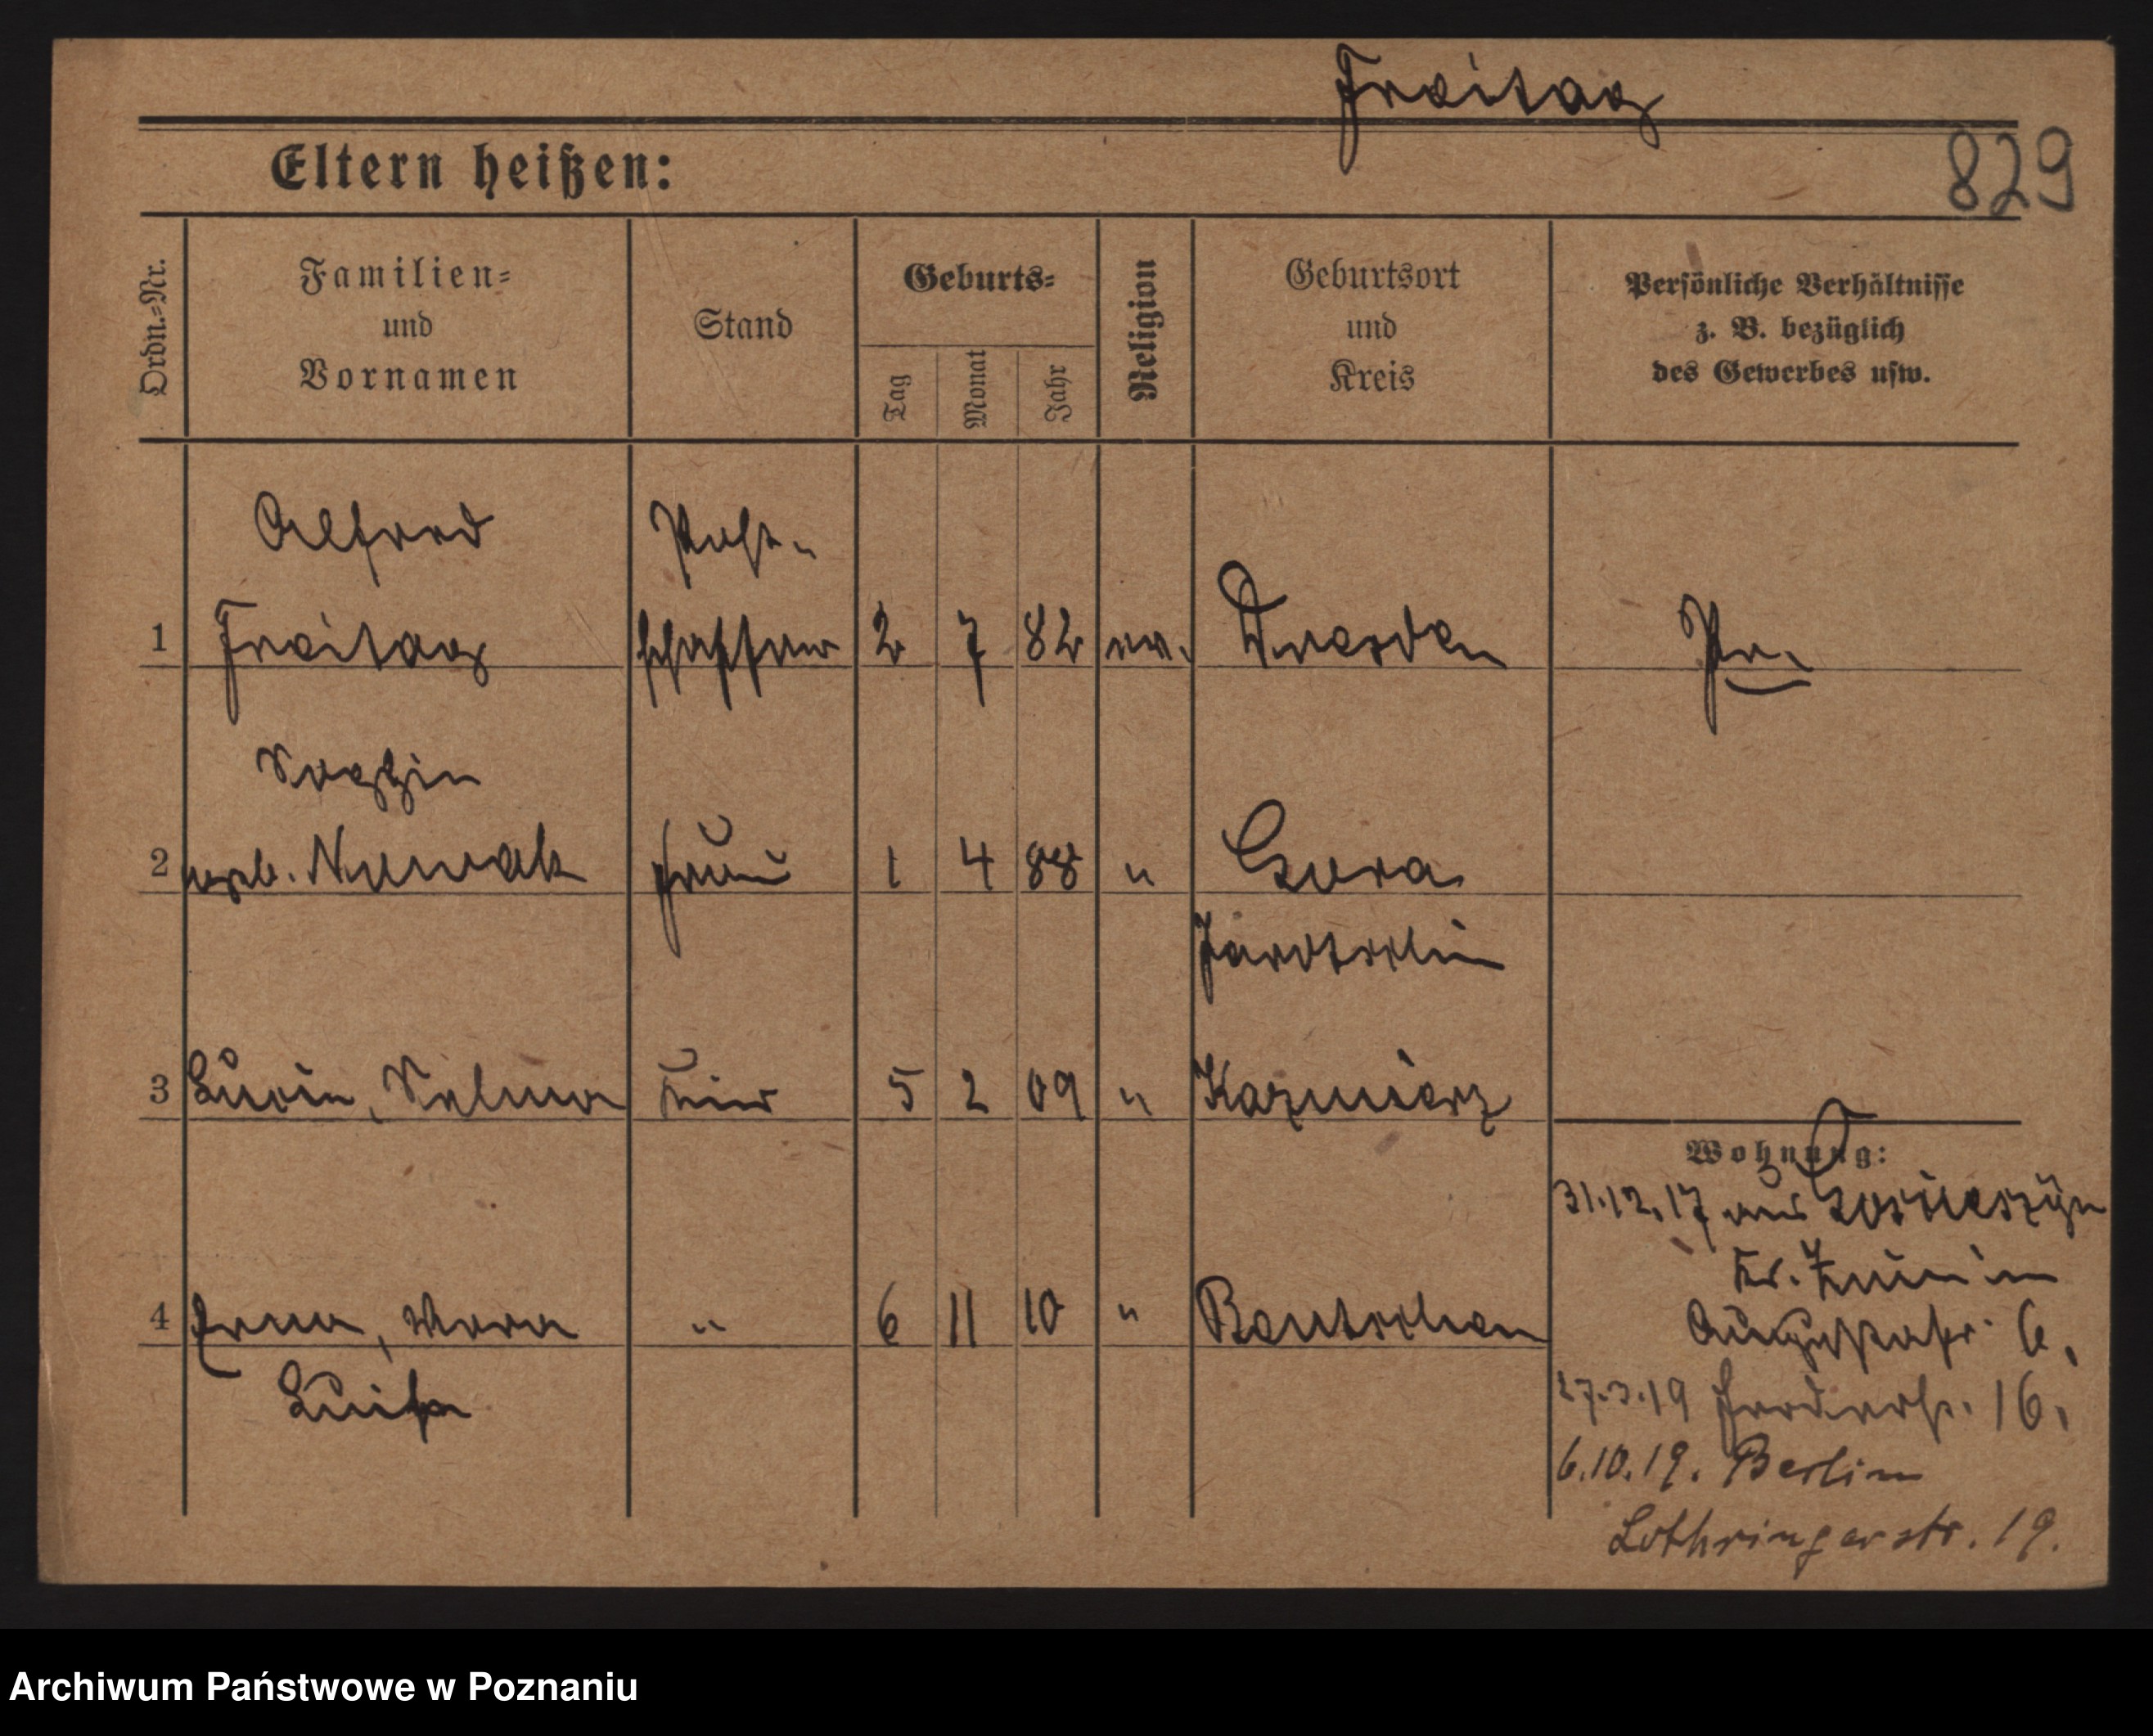 Freitag
829
Eltern heißen:
Ordn.=Nr.
Familien=
und
Vornamen
Stand
Geburts=
Tag
Monat
Jahr
Religion
Geburtsort
und
Kreis
Persönliche Verhältnisse
z. B. bezüglich
des Gewerbes usw.
Alfred Post-
1 Freitag schaffner 2 7 82 ev. Dresden Pr.
Sophie
2 geb. Nowak Frau 1 4 88 " Gora
Jarotschin
3 Luzie, Selma Kind 5 2 09 " Kazmierz
Wohnung:
31.12.17 aus
Kr. Znin in
4 Erna, Wera " 6 11 10 " Bentschen
Augustastr. 6.
Luise
27.3.19 16.
6.10.19. Berlin
Lothringerstr. 19.
Archiwum Państwowe w Poznaniu